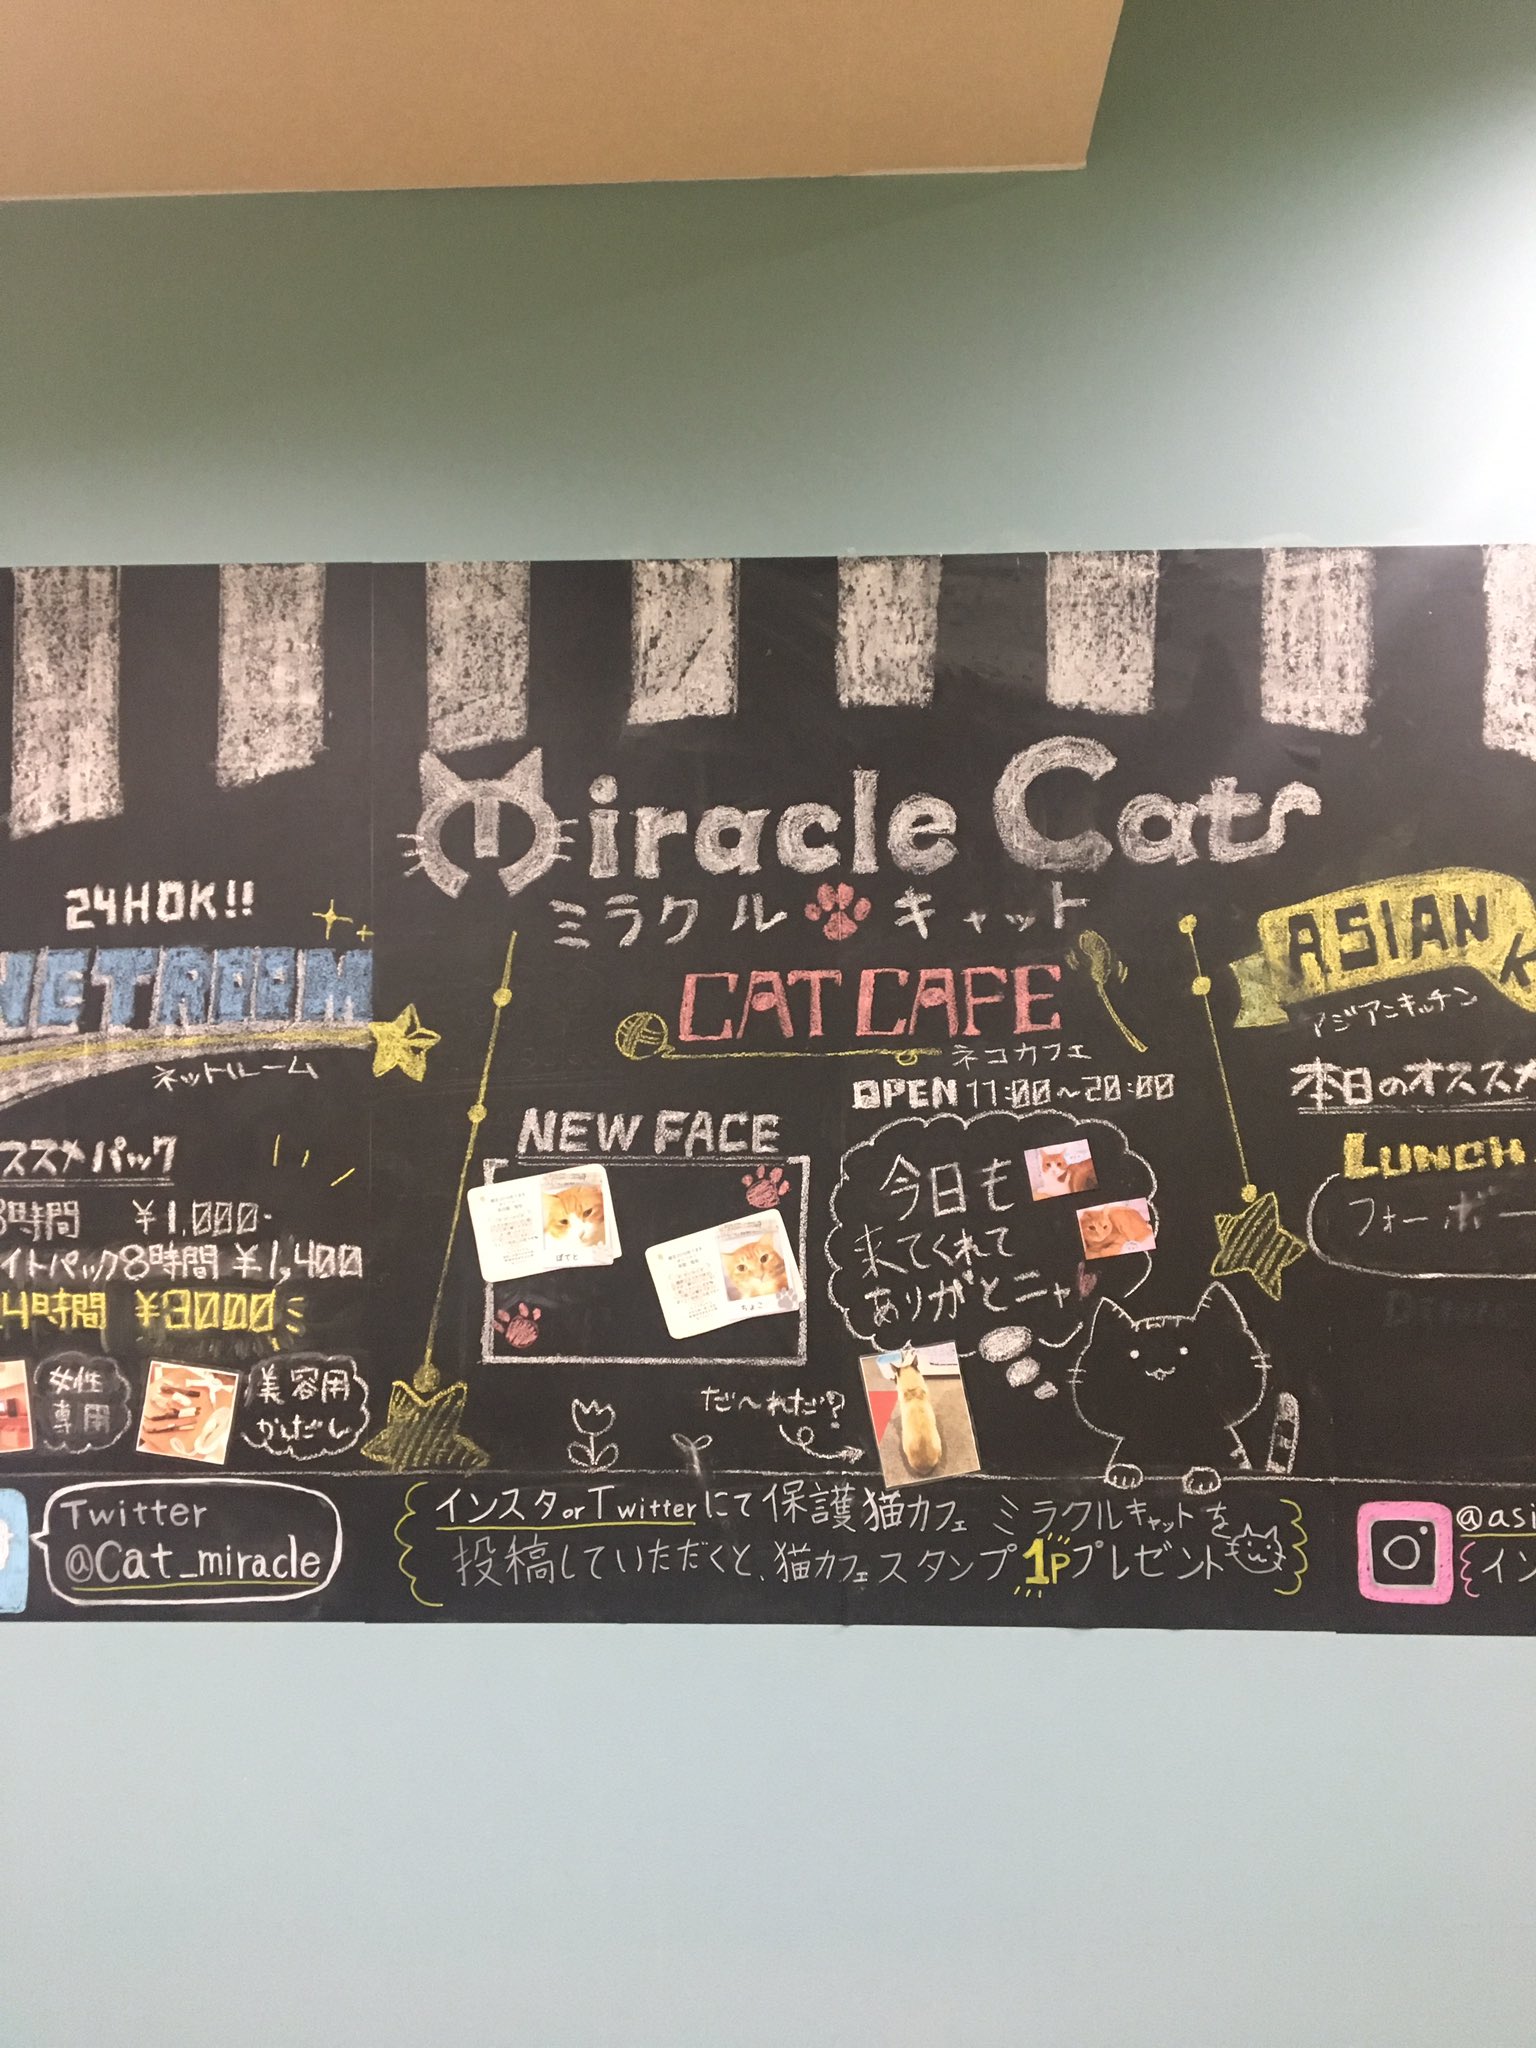 Miracle Cat
ミラクルキャット
24HOK!!
NET ROOM
ネットルーム
ススメパック
8時間 ¥1,000-
イトパック8時間 ¥1,400
24時間 ¥3000
女性
専用
美容用
かしだし
Twitter
@Cat_miracle
CAT CAFE
ネコカフェ
OPEN 11:00〜20:00
NEW FACE
ぽてと
ちょこ
今日も
来てくれて
ありがとニャ
だ〜れだ?
インスタorTwitterにて保護猫カフェ ミラクルキャットを
投稿していただくと、猫カフェスタンプ1Pプレゼント
ASIAN K
アジアンキッチン
本日のオススメ
LUNCH
フォーボー
@asi
イン